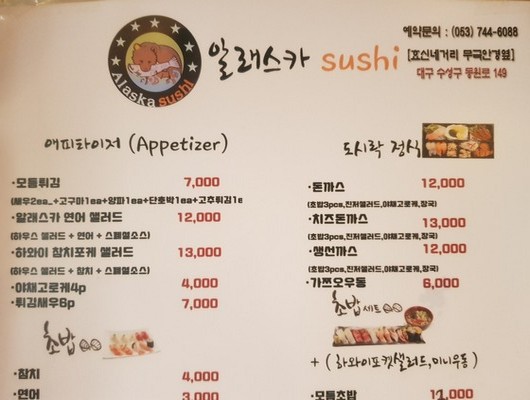 Alaska sushi
알래스카 sushi
예약문의 : (053) 744-6088
[효신네거리 무극안경옆]
대구 수성구 동원로 149
애피타이저 (Appetizer)
·모듬튀김 7,000
(새우2ea_+고구마1ea+양파1ea+단호박1ea+고추튀김1e
·알래스카 연어 샐러드 12,000
(하우스 샐러드 + 연어 + 스페셜소스)
·하와이 참치포케 샐러드 13,000
(하우스 샐러드 + 참치 + 스페셜소스)
·야채고로케4p 4,000
·튀김새우6p 7,000
초밥
·참치 4,000
·연어 3,000
도시락 정식
·돈까스 12,000
(초밥3pcs,진저샐러드,야채고로케,장국)
·치즈돈까스 13,000
(초밥3pcs,진저샐러드,야채고로케,장국)
·생선까스 12,000
(초밥3pcs,진저샐러드,야채고로케,장국)
·가쯔오우동 6,000
초밥 세트
+ (하와이포켓샐러드,미니우동)
·모듬초밥 11,000